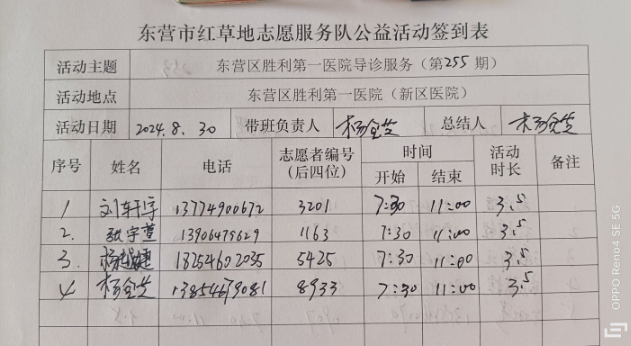 东营市红草地志愿服务队公益活动签到表
活动主题 东营区胜利第一医院导诊服务（第255期）
活动地点 东营区胜利第一医院（新区医院）
活动日期 2024.8.30 带班负责人 杨金芝 总结人 杨金芝
序号 姓名 电话 志愿者编号（后四位） 时间 开始 结束 活动时长 备注
1 刘轩宇 13774900672 3201 7:30 11:00 3.5
2. 张宇萱 13906475629 1163 7:30 11:00 3.5
3. 杨 13254602035 5425 7:30 11:00 3.5
4 杨金芝 13854679081 8933 7:30 11:00 3.5
OPPO Reno4 SE 5G